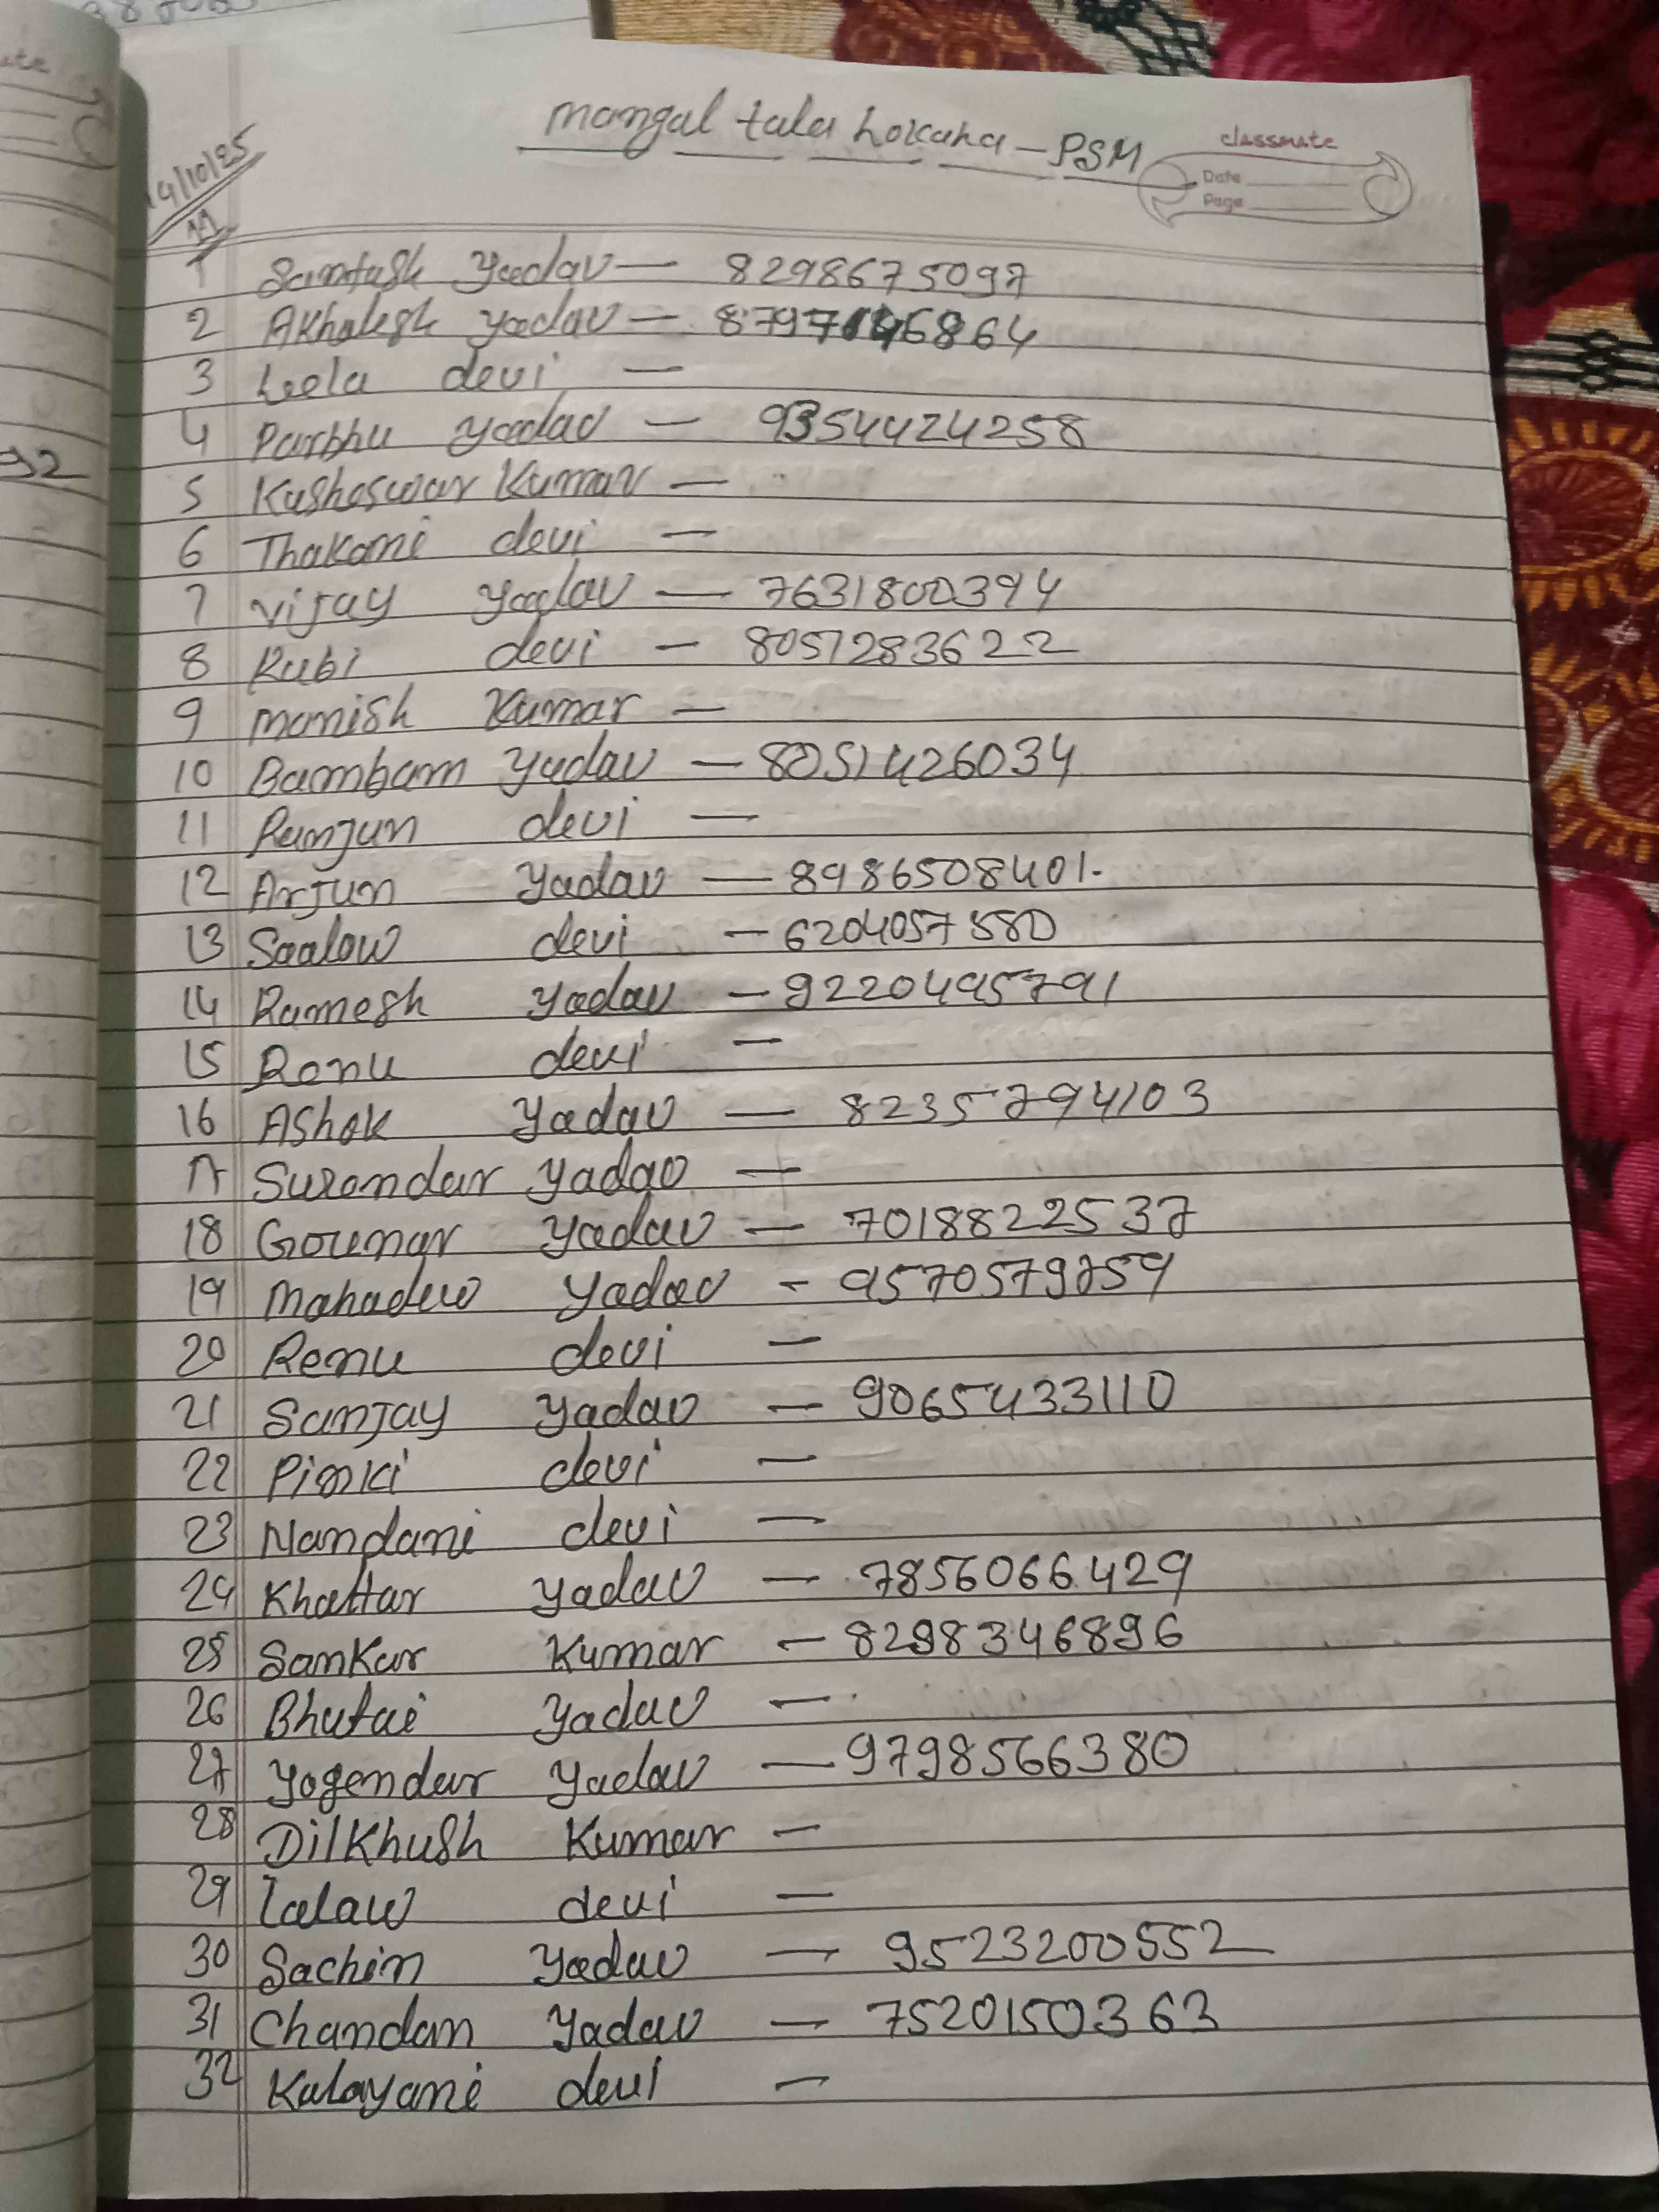 mangal tala Lokaha - PSM
classmate
Date
Page
14/10/25
1 Santush Yadav — 8298675097
2 Akhalesh Yadav — 8797146864
3 Leela devi —
4 Parbhu Yadav — 9354424258
5 Kusheswar Kumar —
6 Thakani devi —
7 Vijay Yadav — 7631800394
8 Rubi devi — 8051283622
9 manish Kumar —
10 Bambam Yadav — 8051426034
11 Ranjun devi —
12 Arjun Yadav — 8986508401.
13 Saalow devi — 6204057580
14 Ramesh Yadav — 9220495791
15 Renu devi —
16 Ashok Yadav — 8235794103
17 Surendar Yadav —
18 Yadav — 7018822537
19 Mahadew Yadav - 9570579759
20 Renu devi —
21 Sanjay Yadav — 9065433110
22 Pinki devi —
23 Nandani devi —
24 Khattar Yadav — 7856066429
25 Sankar Kumar — 8298346896
26 Bhutai Yadav —
27 Yogendar Yadav — 9798566380
28 Dilkhush Kumar —
29 Lalaw devi —
30 Sachin Yadav — 9523200552
31 Chandan Yadav — 7520150363
32 Kalayani devi —